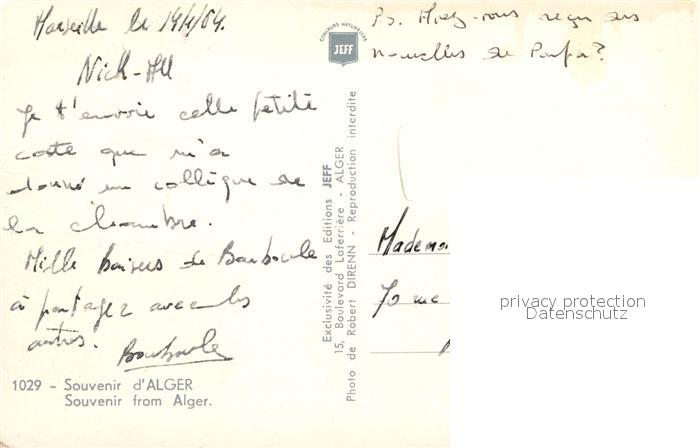 Marseille le 14/4/64.
Nick-All
Je t'envoie cette petite
carte que m'a
donné un collègue de
la chambre.
Mille baisers de Bouboule
à partagez avec les
autres.
Bouboule
1029 - Souvenir d'ALGER
Souvenir from Alger.
COULEURS NATURELLES
JEFF
Exclusivité des Editions JEFF
15, Boulevard Laferrière - ALGER
Photo de Robert DIRENN - Reproduction interdite
P.S. -vous reçu des
nouvelles de ?
Mademoi
70 rue
privacy protection
Datenschutz